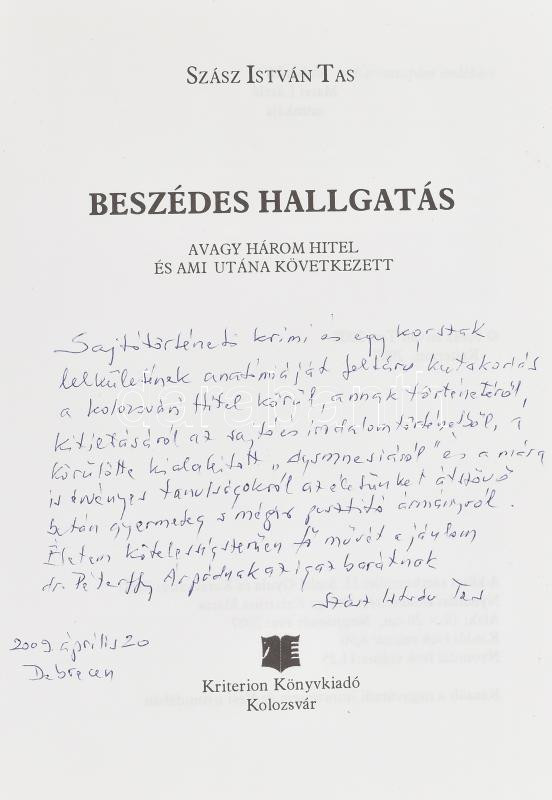 SZÁSZ ISTVÁN TAS
BESZÉDES HALLGATÁS
AVAGY HÁROM HITEL
ÉS AMI UTÁNA KÖVETKEZETT
Sajtótörténeti krimi és egy korszak
lelkületének anatómiáját feltáró kutakodás
a kolozsvári Hitel körül annak történetéről,
kitiltásáról az sajtó és irodalomtörténetből, a
körülötte kialakított „dysmnesiáról" és a máig
is érvényes tanulságokról az életünket átszövő
bután gyermeteg s mégis pusztító ármányról.
Életem kötelességszerűen fő művét ajánlom
dr. Péterffy Árpádnak az igaz barátnak
Szász István Tas
2009. április 20
Debrecen
Kriterion Könyvkiadó
Kolozsvár